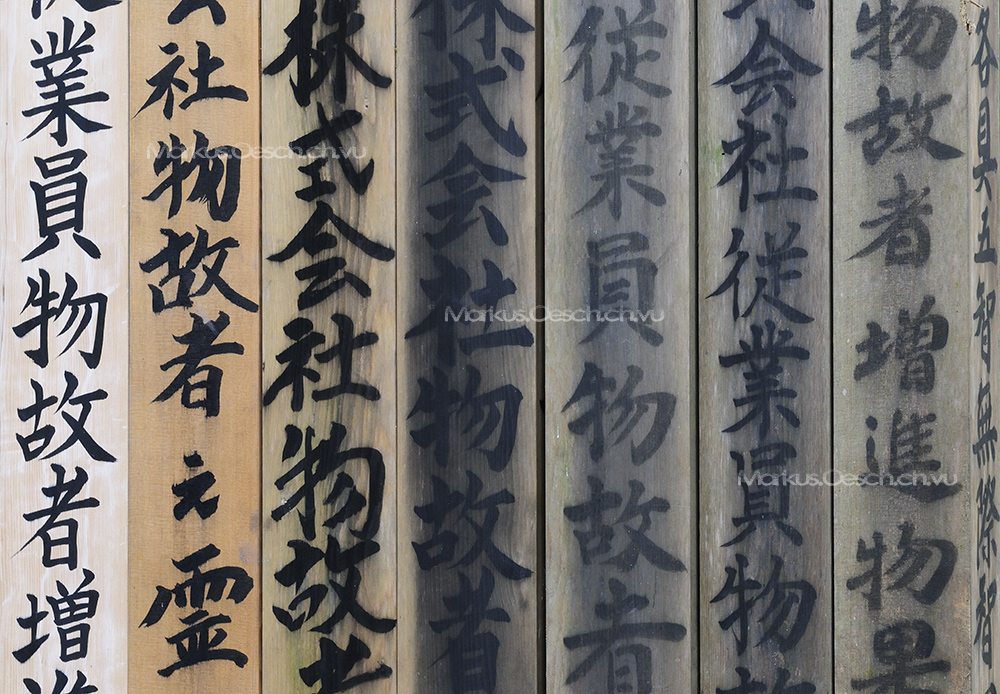 各具五智無際智
物故者増進物果
会社従業員物故
従業員物故者
株式会社物故者
株式会社物故者
社物故者之霊
従業員物故者増進
Markus.Oesch.ch.vu
Markus.Oesch.ch.vu
Markus.Oesch.ch.vu